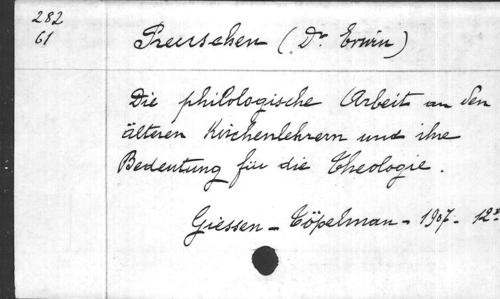 282
61
Preuschen (Dr Erwin)
Die philologische Arbeit an den
älteren Kirchenlehrern und ihre
Bedeutung für die Theologie.
Giessen - Töpelman - 1907 - 12º